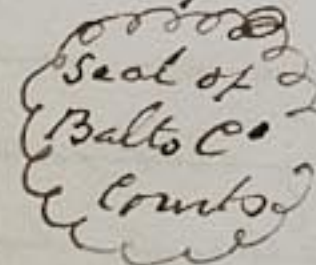 Seal of
Balto Co
Courts